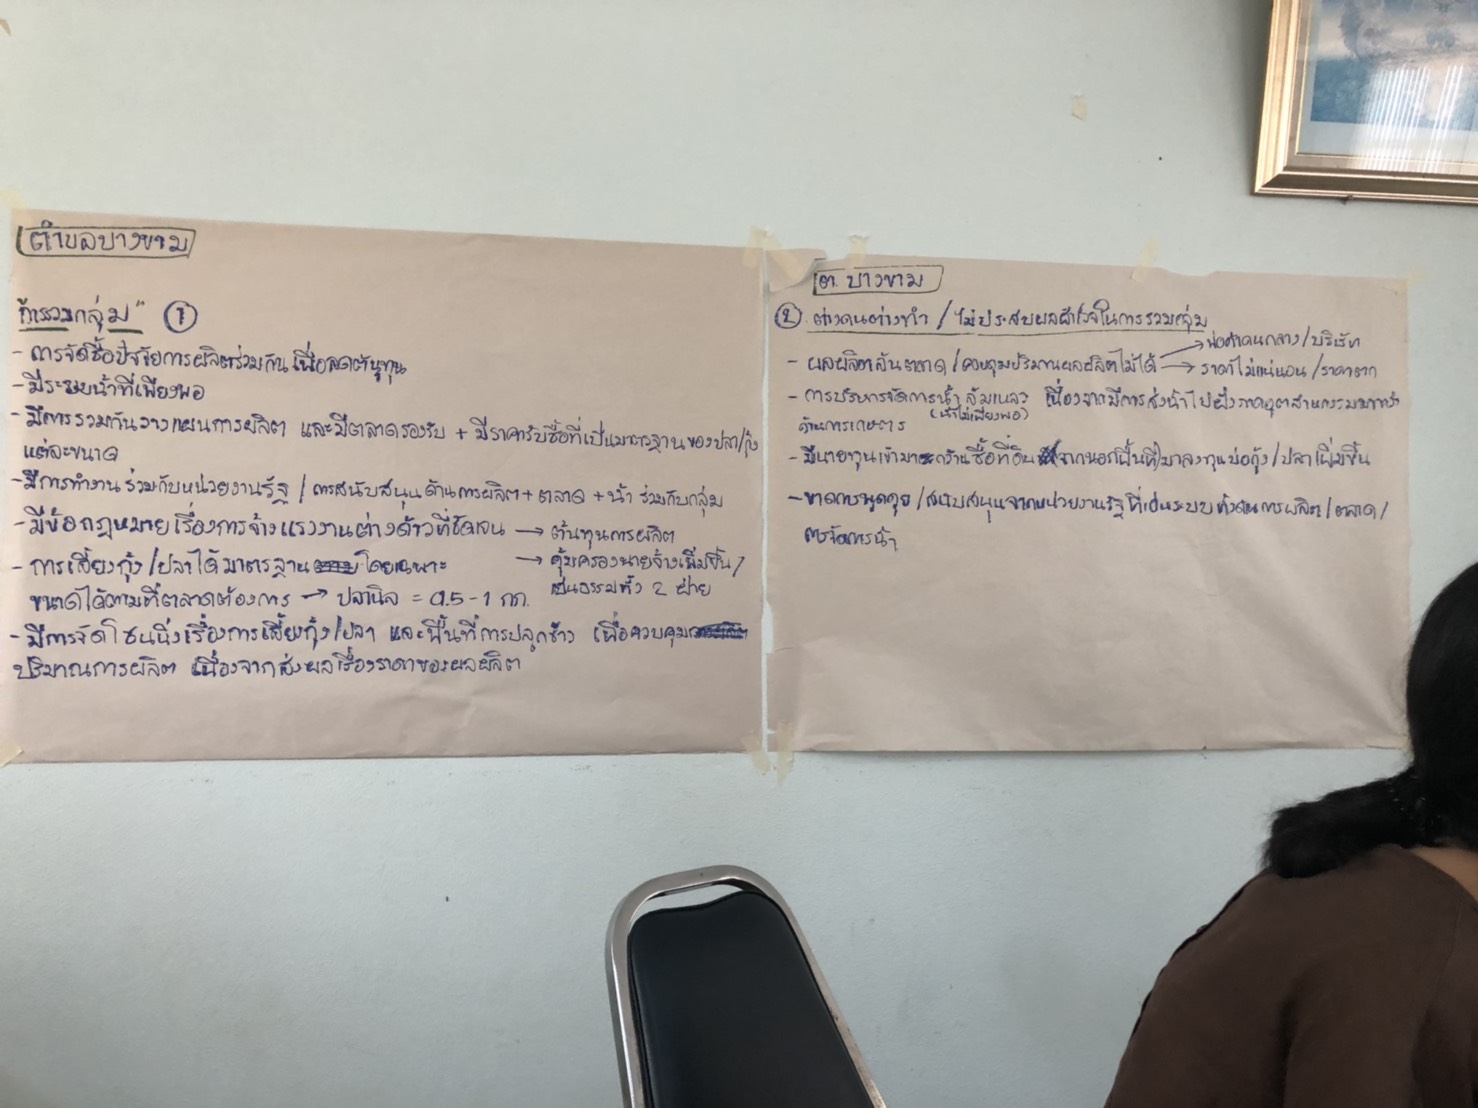 ตำบลบางขาม
การรวมกลุ่ม" ①
- การจัดซื้อปัจจัยการผลิตร่วมกัน เพื่อลดต้นทุน
- มีระบบน้ำที่เพียงพอ
- มีการรวมกันวางแผนการผลิต และมีตลาดรองรับ + มีราคารับซื้อที่เป็นมาตรฐานของปลา/กุ้ง
แต่ละขนาด
- มีการทำงานร่วมกับหน่วยงานรัฐ / การสนับสนุนด้านการผลิต + ตลาด + น้ำ ร่วมกับกลุ่ม
- มีข้อกฎหมายเรื่องการจ้างแรงงานต่างด้าวที่ชัดเจน → ต้นทุนการผลิต
→ คุ้มครองนายจ้างเพิ่มขึ้น/
เป็นธรรมทั้ง 2 ฝ่าย
- การเลี้ยงกุ้ง/ปลาได้มาตรฐาน โดยเฉพาะ
ขนาดได้ตามที่ตลาดต้องการ → ปลานิล = 0.5 - 1 กก.
- มีการจัดโซนนิ่งเรื่องการเลี้ยงกุ้ง/ปลา และพื้นที่การปลูกข้าว เพื่อควบคุม
ปริมาณการผลิต เนื่องจากส่งผลเรื่องราคาของผลผลิต
ต. บางขาม
② ต่างคนต่างทำ / ไม่ประสบผลสำเร็จในการรวมกลุ่ม
- ผลผลิตล้นตลาด / ควบคุมปริมาณผลผลิตไม่ได้ → พ่อค้าคนกลาง/บริษัท
→ ราคาไม่แน่นอน / ราคาตก
- การบริหารจัดการน้ำล้มเหลว เนื่องจากมีการส่งน้ำไปยังภาคอุตสาหกรรมมากกว่า
(น้ำไม่เพียงพอ)
ด้านการเกษตร
- มีนายทุนเข้ามากว้านซื้อที่ดิน (จากนอกพื้นที่) มาลงทุนบ่อกุ้ง/ปลาเพิ่มขึ้น
- ขาดการพูดคุย / สนับสนุนจากหน่วยงานรัฐที่เป็นระบบ ทั้งด้านการผลิต / ตลาด /
การจัดการน้ำ